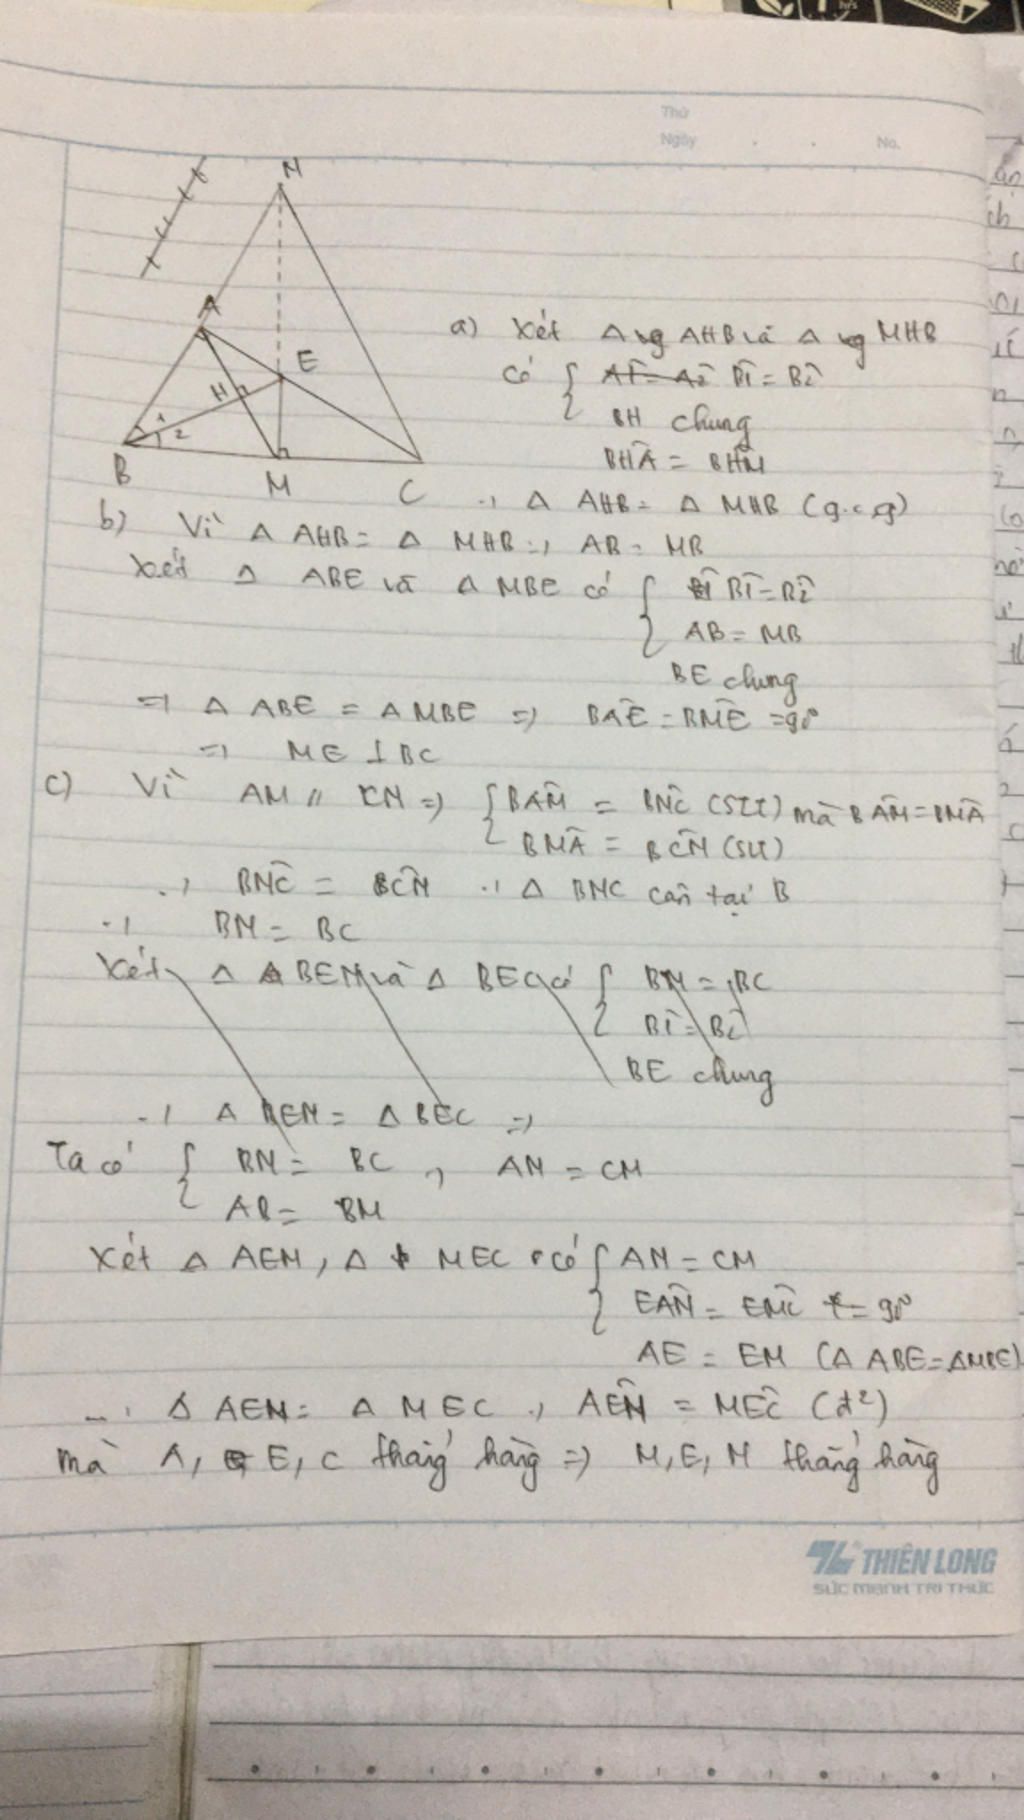 Thứ
Ngày No.
N
A
E
H
1
2
B
M
C
a) Xét Δ vg AHB và Δ vg MHB
có { B̂1 = B̂2
BH chung
BĤA = BĤM
⇒ Δ AHB = Δ MHB (g.c.g)
b) Vì Δ AHB = Δ MHB ⇒ AB = MB
Xét Δ ABE và Δ MBE có { B̂1 = B̂2
AB = MB
BE chung
⇒ Δ ABE = Δ MBE ⇒ BÂE = BM̂E = 90°
⇒ ME ⊥ BC
c) Vì AM // CN ⇒ { BÂM = BN̂C (SLT) mà BÂM = BM̂A
BM̂A = BĈN (SLT)
⇒ BN̂C = BĈN ⇒ Δ BNC cân tại B
⇒ BN = BC
Xét Δ BEN và Δ BEC có { BN = BC
B̂1 = B̂2
BE chung
⇒ Δ BEN = Δ BEC ⇒
Ta có { BN = BC ⇒ AN = CM
AB = BM
Xét Δ AEN, Δ MEC có { AN = CM
EÂN = EM̂C = 90°
AE = EM (Δ ABE = ΔMBE)
⇒ Δ AEN = Δ MEC ⇒ AÊN = MÊC (đ²)
mà A, E, C thẳng hàng ⇒ M, E, N thẳng hàng
THIÊN LONG
SỨC MẠNH TRI THỨC